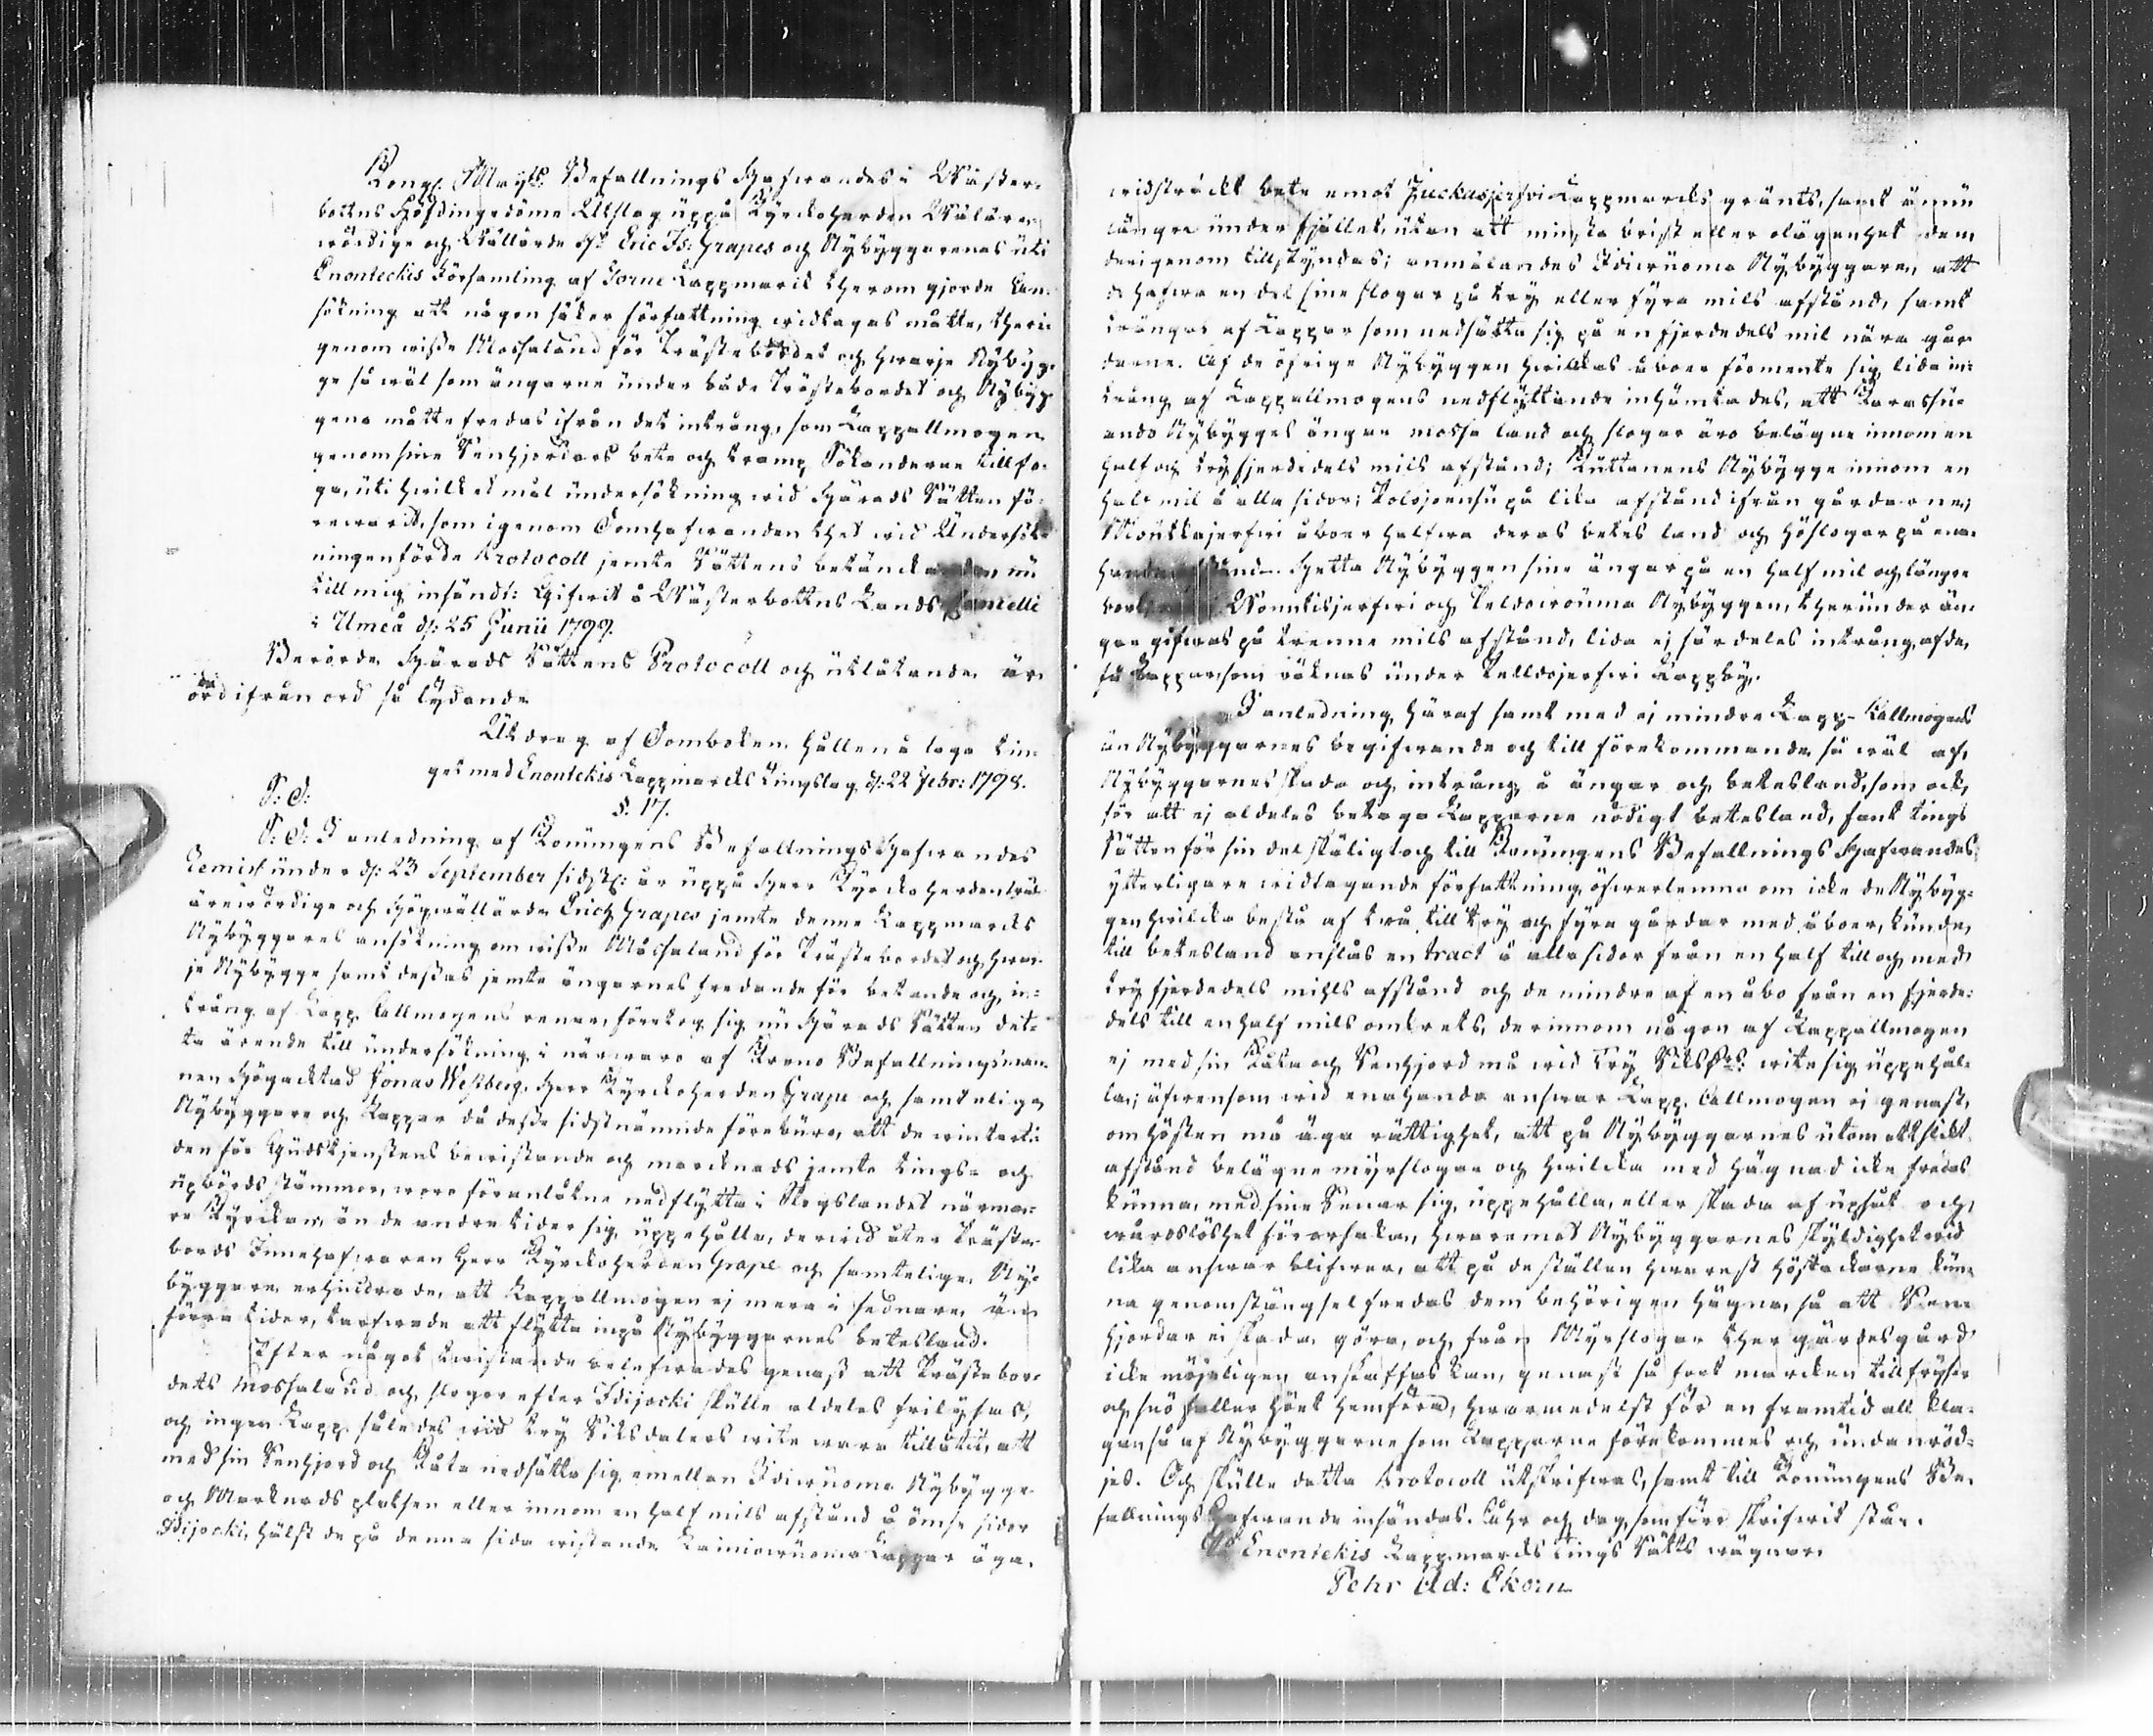 Kongl. Maj:ts Befallnings Hafwandes i Wäster-
bottns Höfdingedöme Utslag uppå Kyrckoherden Wälärer
wördige och Wällärde Hr Eric Is: Grapes och Nybyggarenas uti
Enonteckis Församling af Torne Lappmarck therom gjorde An-
sökning att någon säker författning widtagas måtte, theri-
genom wisse Mossaland för Prästebordet och hwarje Nybyg-
ge så wäl som ängarne under både Prästebordet och Nybyg-
gena måtte fredas ifrån det intrång, som Lappallmogen
genom sine Renhjordars bete och tramp Sökanderne tillfo-
ga, uti hwilket mål undersökning wid Härads Rätten fö-
rewarit, som igenom Domhafwanden thet wid Undersök-
ningen förde Protocoll jemte Rättens betänckanden nu
till mig insändt: Gifwit å Wästerbottns Lands Cancelli
i Umeå d: 25 Junii 1799.
Berörde Härads Rättens Protocoll och utlåtande är
ord ifrån ord så lydande
Utdrag af Domboken hållen å laga tin-
get med Enontekis Lappmarcks Tingslag d: 22 Febr: 1798.
S: D:
§. 17.
S: D: I anledning af Konungens Befallnings Hafwandes
Remiss under d: 23 September sidstl: år uppå Herr Kyrckoherden wäl
ärewördige och Högwällärde Erich Grapes jemte denne Lappmarcks
Nybyggares ansökning om wisse Måssaland för Prästebordet och hwar-
je Nybygge samt dessas jemte ängarnes fredande för betande och in-
trång af Lapp Allmogens renar, företog sig nu Härads Rätten det-
ta ärende till undersökning i närwaro af Krono Befallningsman-
nen Högacktad Jonas Westberg, Herr Kyrckoherden Grape och samtelige
Nybyggare och Lappar då desse sidstnämnde förebure, att de winterti-
den för Gudstjenstens bewistande och marcknads jemte tings- och
upbörds stämmor, woro föranlåtne nedflytta i Skogslandet närma-
re Kyrckan, än de andre tider sig uppehålla, derwid åter Präste-
bords Innehafwaren Herr Kyrckoherden Grape och samtelige Ny-
byggare erhindrade, att Lappallmogen ej mera i sednare än
förra tider, tarfwade att flytta inpå Nybyggarnes betesland.
Efter något twistande belefwades genast att Prästebor-
dets Mossaland och slogor efter Idijocki skulle aldeles frilysas,
och ingen Lapp således wid try Riksdalers wite wara tillåtit, att
med sin Renhjord och Kåta nedsätta sig emellan Idiwuoma Nybygge
och Marknads platsen eller innom en half mils afstånd å ömse sidor
Idijocki, hälst de på denna sida wistande Lainiowuoma Lappar äga
widsträckt bete emot Juckasjerfwi Lappmarcks gränts, samt ännu
längre under fjället, utan att minsta brist eller olägenhet dem
derigenom tillskyndas; anmälandes Idiwuoma Nybyggaren att
de hafwa en del sine slogar på try eller fyra mils afstånd, samt
trängas af Lappar som nedsätta sig på en fjerdedels mil nära går-
darne. Af de öfrige Nybyggen hwilkas åboer förmente sig lida in-
trång af Lappallmogens nedflyttande inhämtades, att Karessu-
ando Nybygges ängar mossa land och slogar äro belägne innom en
half och try fjerdedels mils afstånd; Kuttanens Nybygge innom en
half mil å alla sidor; Palojoensu på lika afstånd ifrån gårdarne;
Muotkajerfwi åboer hafwa deras betes land och höslogar på ena-
handa afstånd. Hetta Nybyggen sine ängar på en half mil och längre
bort; Wountisjerfwi och Peldowuoma Nybyggen, therunder än-
gar gifwas på trenne mils afstånd, lida ej särdeles intrång af de
få Lappar, som räknas under Pelldojerfwi Lappby.
I anledning häraf samt med ej mindre Lapp-Allmogens
än Nybyggarnes begifwande och till förekommande så wäl af
Nybyggarnes skada och intrång å ängar och betesland, som ock,
för att ej aldeles betaga Lapparne nödigt betesland, fant tings
Rätten för sin del skäligt och till Konungens Befallnings Hafwandes
ytterligare widtagande författning öfwerlemna om icke de Nybyg-
gen hwilcka bestå af twå till try och fyra gårdar med åboer, kunde,
till betesland anslås en tract å alla sidor från en half till och med
try fjerdedels mihls afstånd och de mindre af en åbo från en fjerde-
dels till en half mils omkrets, derinnom någon af Lappallmogen
ej med sin Kåta och Renhjord må wid Try Riksdrs: wite sig uppehål-
la; äfwensom wid enahanda answar Lapp Allmogen ej genast,
om hösten må äga rättighet, att på Nybyggarnes utom ett slikt
afstånd belägne myrslogar och hwilcka med hägnad icke fredas
kunna, med sine Renar sig uppehålla, eller skada af upsåt och
wårdslöshet förorsaka, hwaremot Nybyggarnes skyldighet wid
lika answar blifwer, att på de ställen hwarest höstackarne kun-
na genom stängsel fredas dem behörigen hägna, så att Ren-
hjordar ei skada göra, och från Myrslogar ther gärdesgård
icke möjeligen anskaffas kan, genast så fort marcken tillfryser
och snö faller höet hemföra, hwarmedelst för en framtid all kla-
gan så af Nybyggarne som Lapparne förekommes och undanröd-
jes. Och skulle detta Protocoll utskrifwas, samt till Konungens Be-
fallnings Hafwande insändas. Åhr och dag, som förr skrifwit står.
På Enontekis Lappmarcks Tings Rätts wägnar.
Pehr Ad: Ekorn